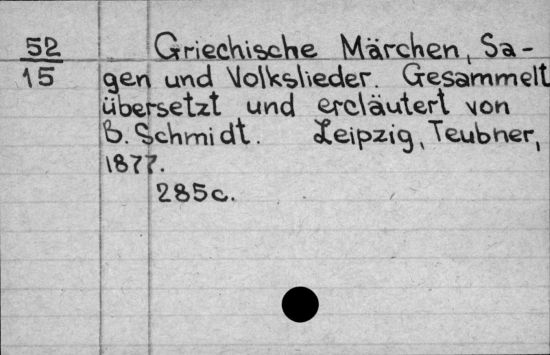 52
15
Griechische Märchen, Sa-
gen und Volkslieder. Gesammelt
übersetzt und ercläutert von
B. Schmidt. Leipzig, Teubner,
1877.
285c.